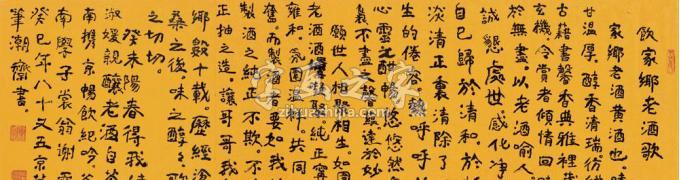 飲家鄉老酒歌
家鄉老酒黄酒也。味
甘溫厚。醇香清瑞彷
古籍書馨香典雅裡
玄機。令賞者傾情回味
於無盡。以老酒喻人
誠懇處世感化净
自己歸於清和。於
淡清正裏清除了
生的倦容。呼呼
心靈酣暢。悠悠然
不盡之馨達於妙
願世人相聚相生。如同
老酒酒聚。純正寧
雍和。氛圍共同
奮而製酒者要知我
酒之純正不欺。不
正抽之造。讓哥哥我
鄉十載。歷經
桑之後。味之醇
之切切。
癸未陽春得我
淑媛親釀老酒自
南携京暢飲紀吟
南學子裳翁謝
癸巳年八十又五京
筆潮齋書。
字画之家
zihuazhijia.com